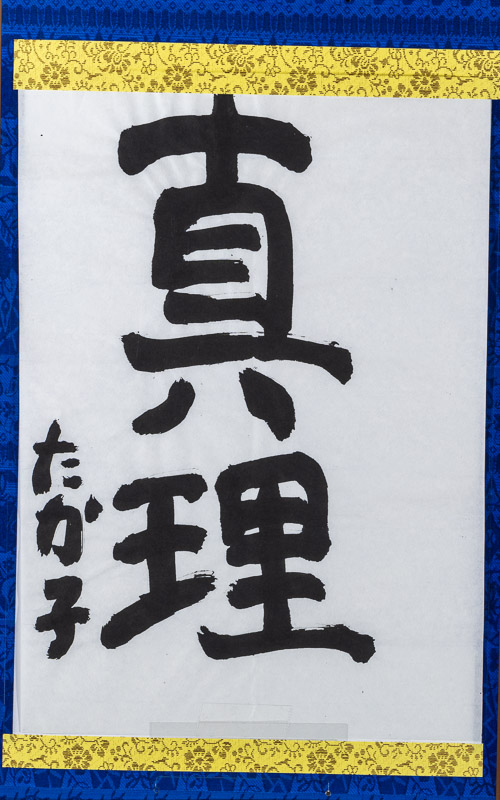 真理
たか子